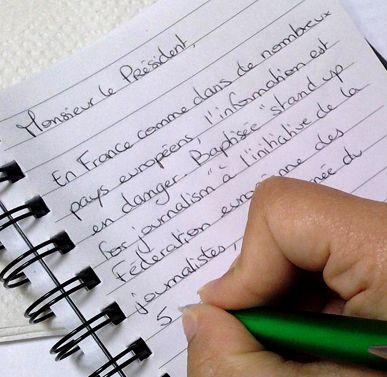 Monsieur le Président,
En France comme dans de nombreux
pays européens, l'information est
en danger. Baptisée "stand up
for journalism" à l'initiative de la
Fédération des
journalistes, du
5